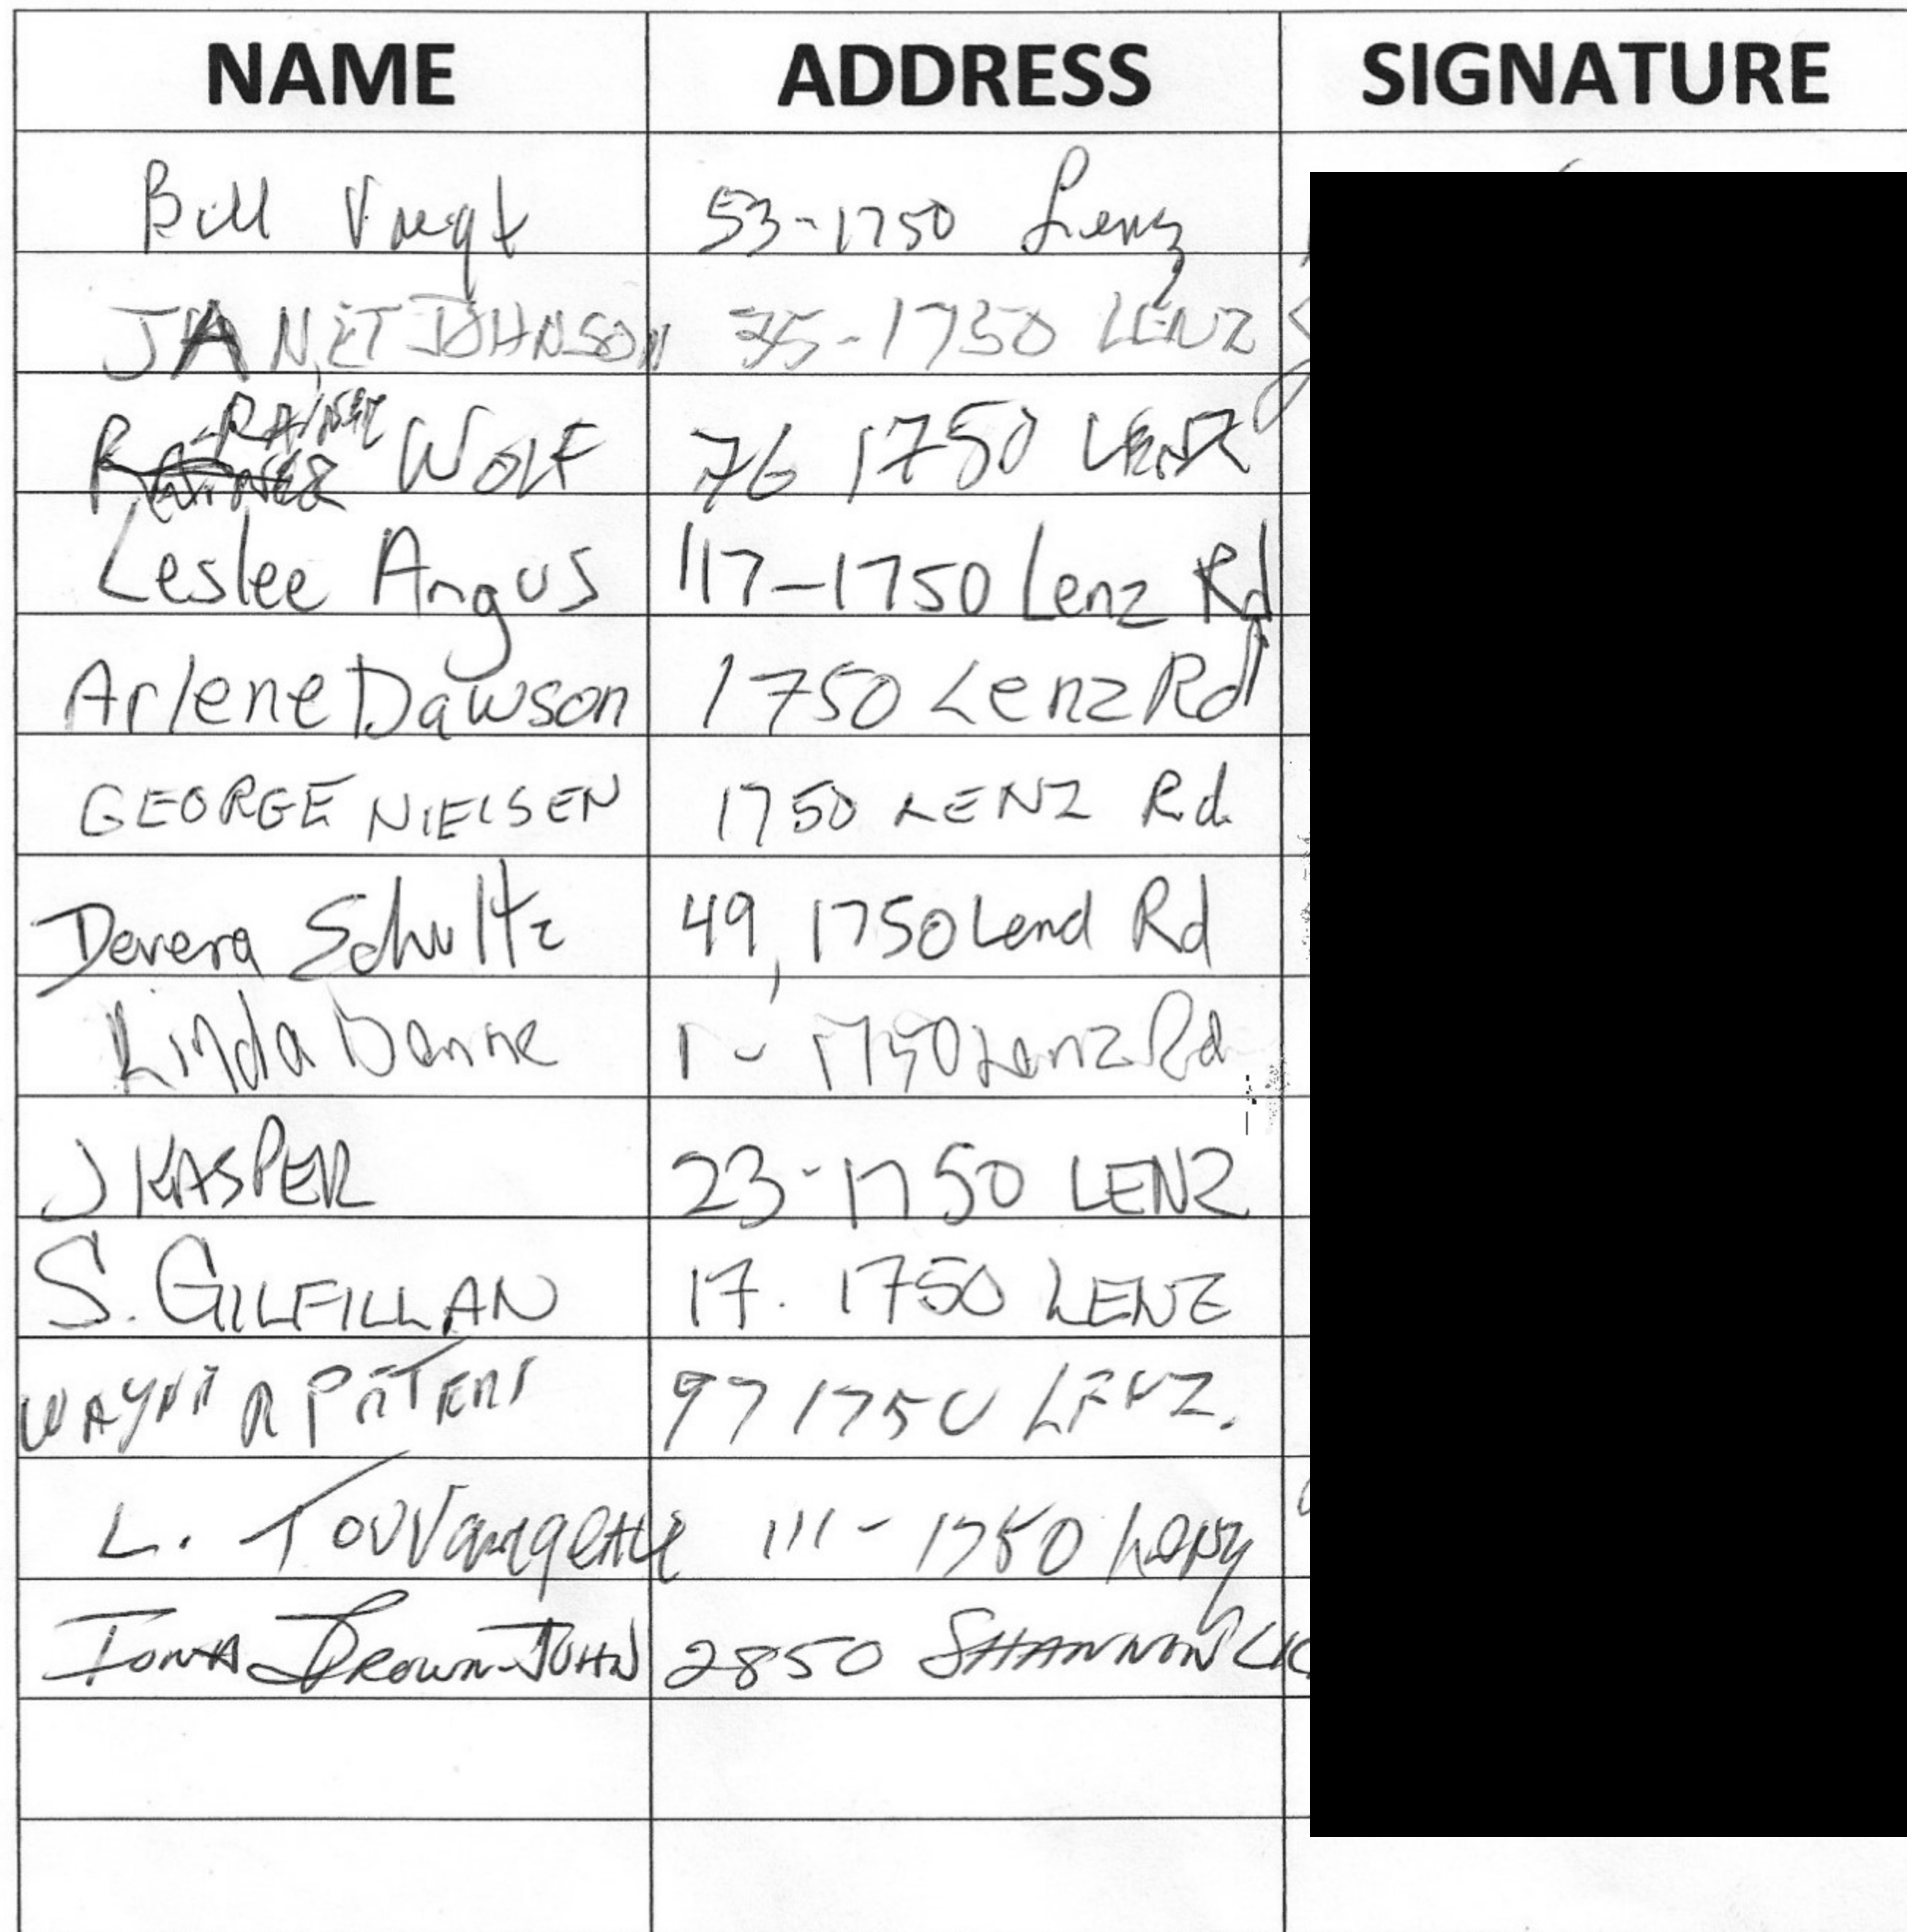 NAME ADDRESS SIGNATURE
Bill 53-1750 Lenz
JANET JOHNSON 75-1750 LENZ
RAINER WOLF 76 1750 LENZ
Leslee Angus 117-1750 Lenz Rd
Arlene Dawson 1750 Lenz Rd
GEORGE NIELSEN 1750 LENZ Rd.
Devera Schultz 49, 1750 Lend Rd
Linda 1-1750 Lenz Rd
J KASPER 23-1750 LENZ
S. GILFILLAN 17. 1750 LENZ
WAYNE R PETERS 97 1750 LENZ.
L. 111-1750 Lenz
IONA BROWN-JOHN 2850 SHANNON